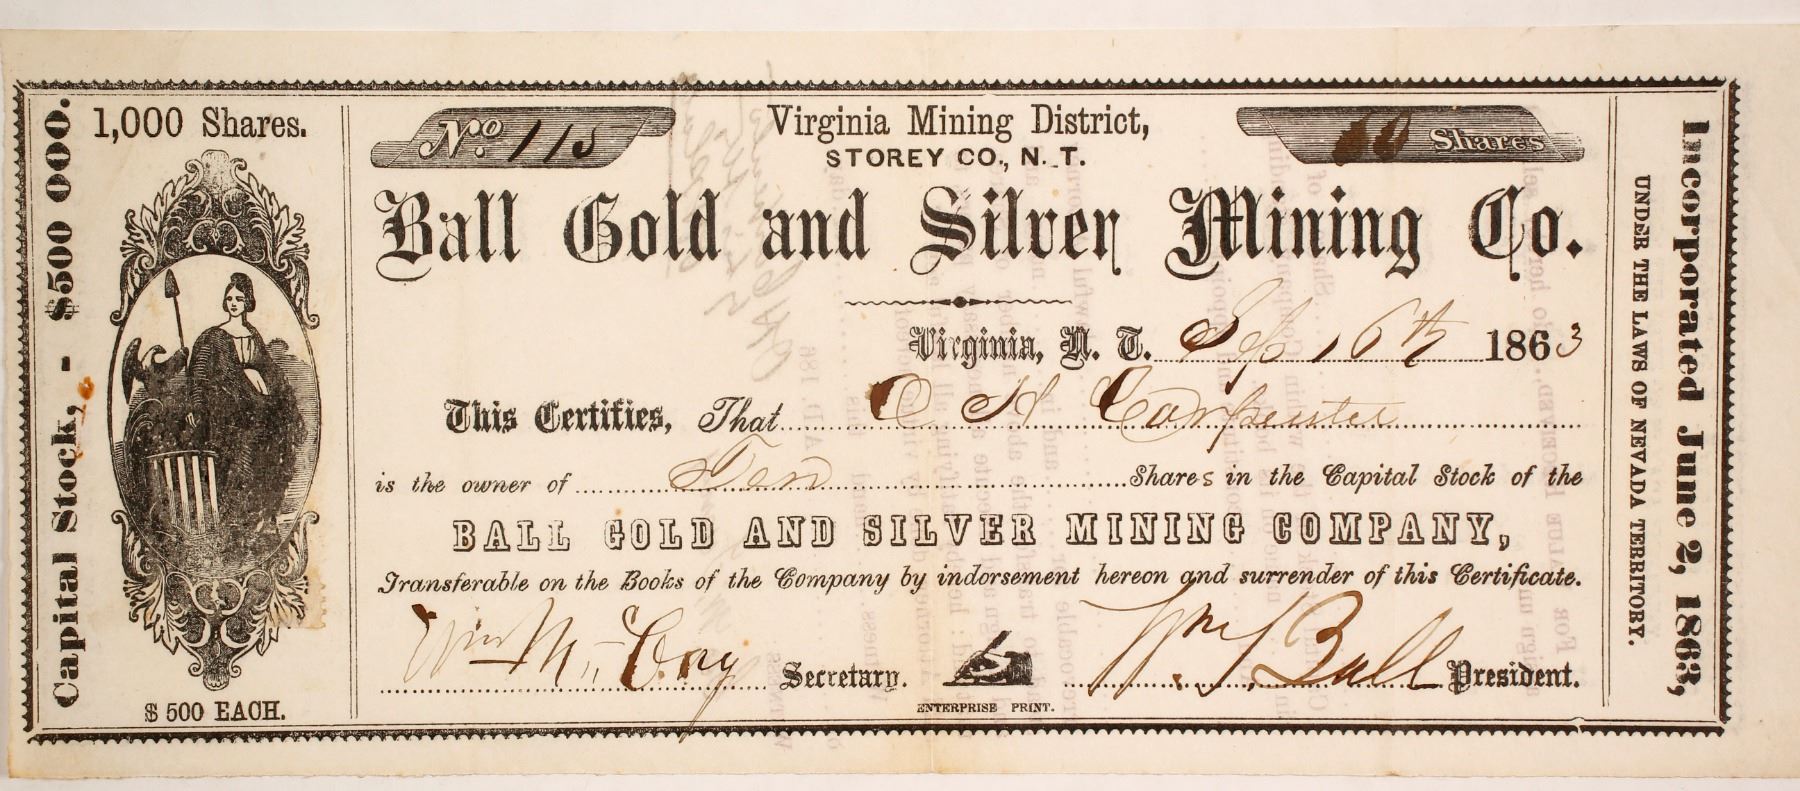 Capital Stock, - $500 000.
1,000 Shares.
$ 500 EACH.
No. 115
Virginia Mining District,
STOREY CO., N. T.
10 Shares
Ball Gold and Silver Mining Co.
Virginia, N. T. Sep 16th 1863
This Certifies, That C H Carpenter
is the owner of Ten Shares in the Capital Stock of the
BALL GOLD AND SILVER MINING COMPANY,
Transferable on the Books of the Company by indorsement hereon and surrender of this Certificate.
Wm Mc Coy Secretary.
Wm J. Ball President.
ENTERPRISE PRINT.
Incorporated June 2, 1863,
UNDER THE LAWS OF NEVADA TERRITORY.